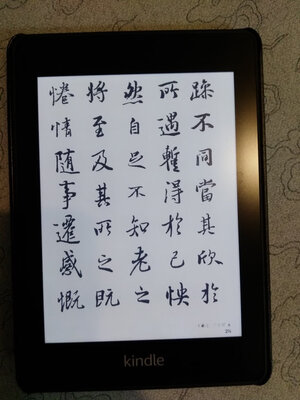 躁不同當其欣於
所遇暫得於己怏
然自足不知老之
將至及其所之既
惓情随事遷感慨
kindle